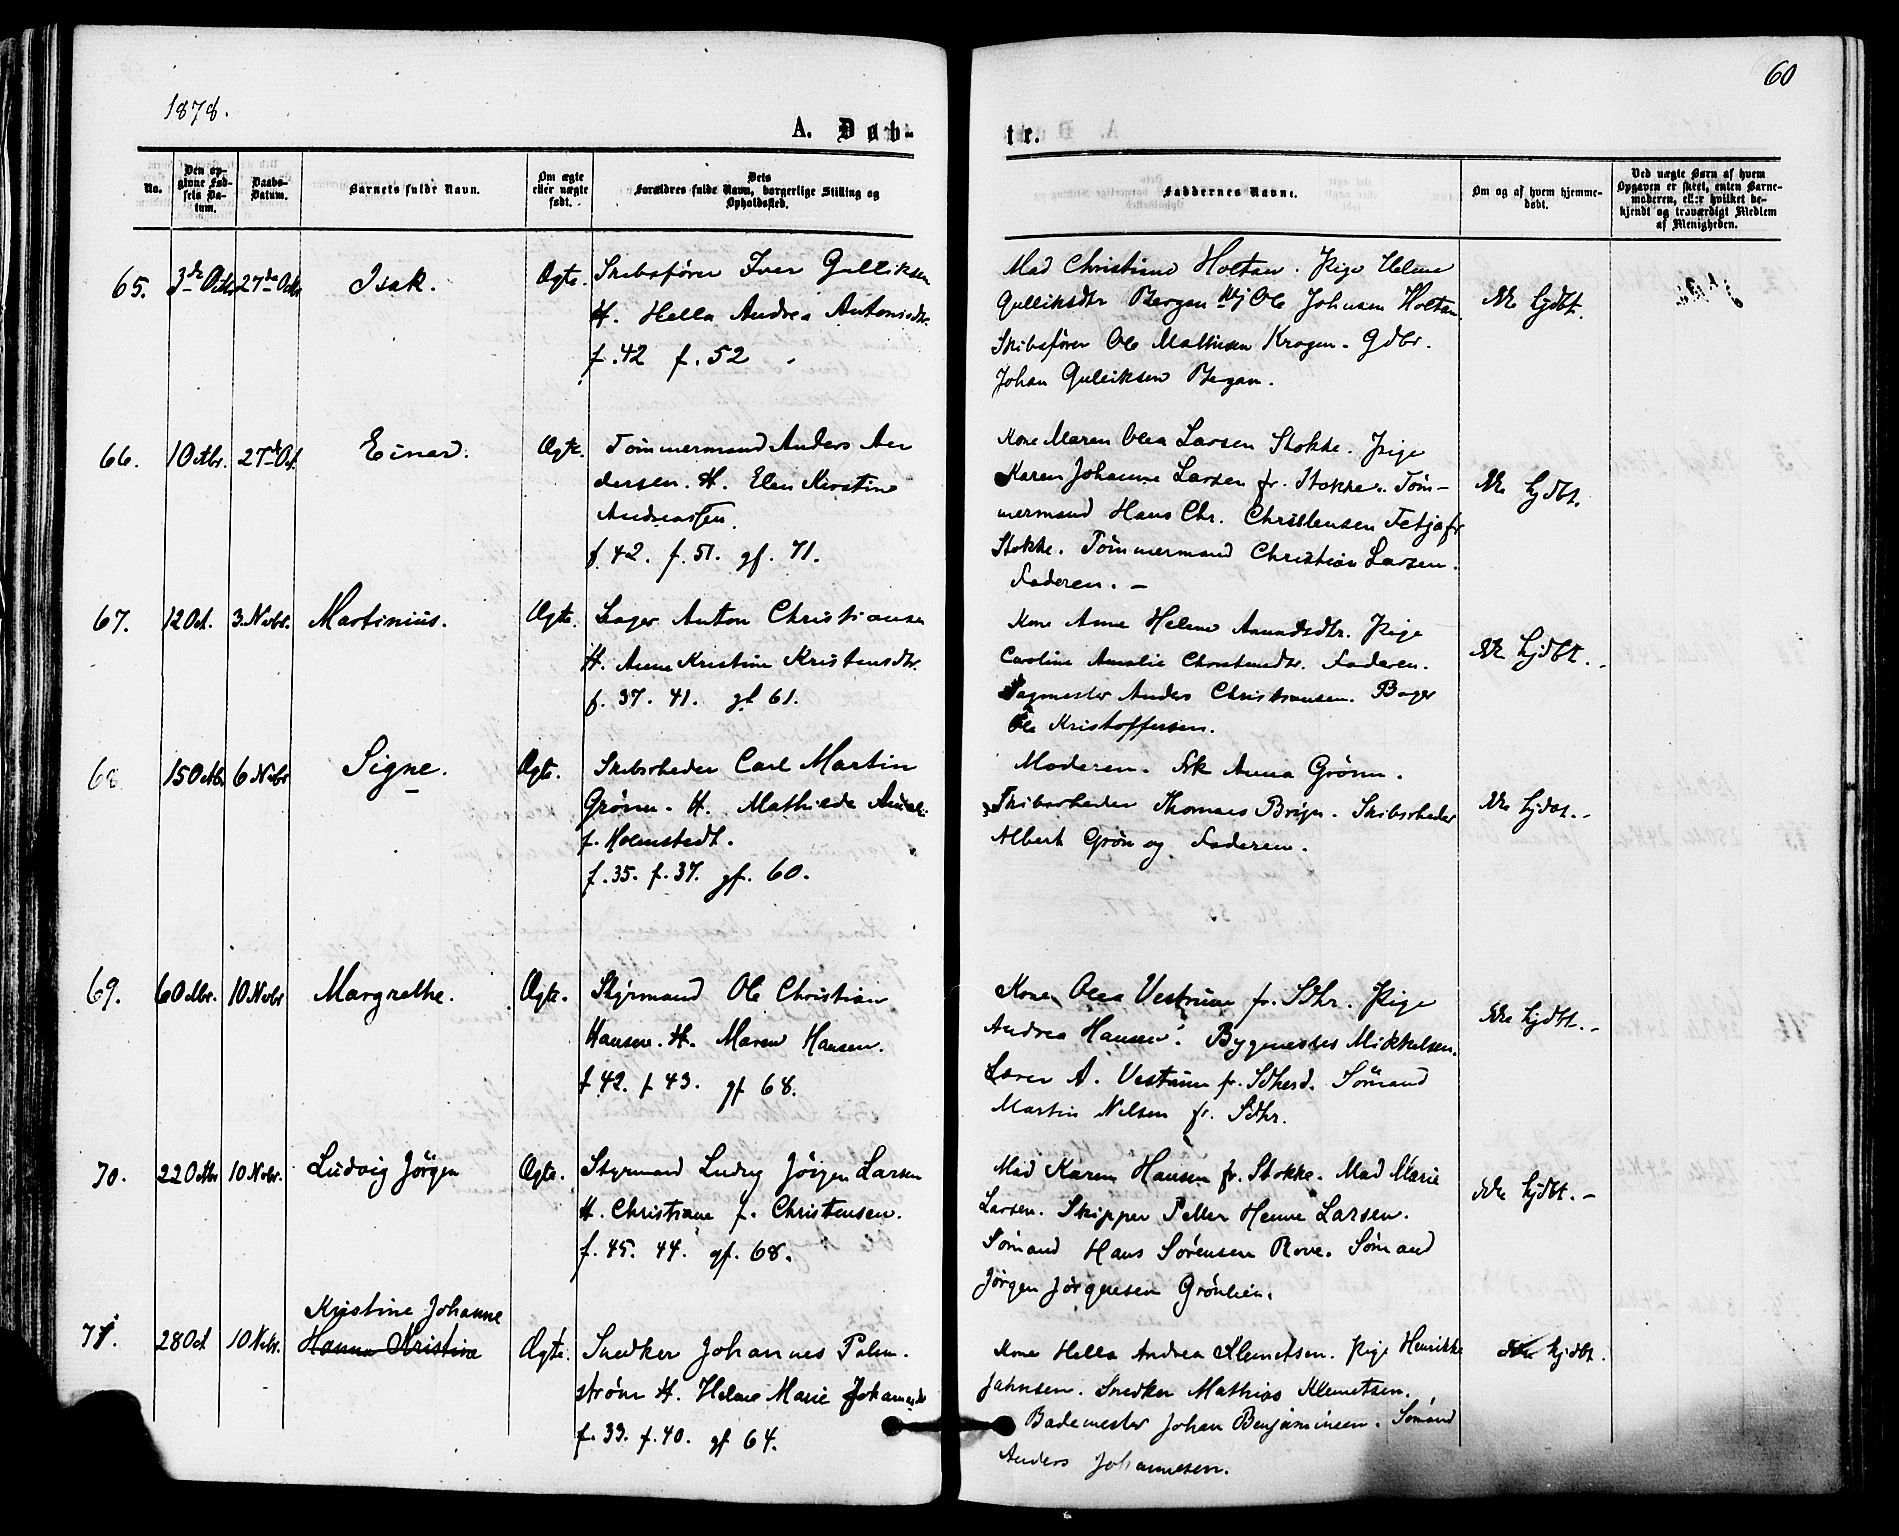 60
1878.
A. Døb-
tr.
No.
Den op-
givne Fød-
sels Da-
tum.
Daabs-
Datum.
Barnets fulde Navn.
Om ægte
eller uægte
født.
Dets
Forældres fulde Navn, borgerlige Stilling og
Opholdssted.
Faddernes Navne.
Om og af hvem hjemme-
døbt.
Ved uægte Børn af hvem
Opgaven er skeet, enten Barne-
moderen, eller hvilket be-
kjendt og troværdigt Medlem
af Menigheden.
65. 3de 27de Isak. Ægte. Skibsfører Iver Gulliksen
H. Hella Andrea
f. 42 f. 52
Mad Christiane Holtan. Pige Helene
Gulliksdtr Bergan Ole Johnsen Holtan
Skibsfører Ole Mathisen Krogen. Gdbr.
Johan Gulliksen Bergan.
Ikke hjdbt.
66. 10 Octbr. 27de Oct. Einar. Ægte. Tømmermand Anders An
dersen. H. Elen Kirstine
Andreassen.
f. 42. f. 51. gf. 71.
Kone Maren Olea Larsen Stokke. Pige
Karen Johanne Larsen fr. Stokke. Tøm-
mermand Hans Chr. Christensen fr
Stokke. Tømmermand Christian Larsen.
Faderen. -
Ikke hjdbt.
67. 12 Oct. 3. Novbr. Martinius. Ægte. Anton Christiansen
H. Anne Kristine Kristensdtr.
f. 37. 41. gf 61.
Kone Anne Helene Amundsdtr. Pige
Caroline Amalie Faderen.
Sagmester Anders Christiansen. Bager
Ole Kristoffersen.
Ikke hjdbt. -
68 15 Octbr 6 Novbr Signe. Ægte. Skibsrheder Carl Martin
Grønn. H. Mathilde
f. Holmstedt.
f. 35. f. 37. gf. 60.
Moderen. Frk Anna Grønn.
Skibsrheder Thomas Skibsrheder
Albert Grøn og Faderen.
Ikke hjdbt. -
69. 6 Octbr. 10 Novbr Margrethe. Ægte. Styrmand Ole Christian
Hansen. H. Maren Hansen.
f 42. f 43. gf 68.
Kone Olea Vestrum fr. Sdhr. Pige
Andrea Hansen. Bygmester Mikkelsen.
Lærer A. Vestrum fr. Sdherd. Sømand
Martin Nilsen fr. Sdhr.
Ikke hjdbt. -
70. 22 Octbr 10 Novbr. Ludvig Jørgen Ægte. Styrmand Ludvig Jørgen Larsen
H. Christiane f. Christensen.
f. 45. 44. gf. 68.
Mad Karen Hansen fr. Stokke. Mad Marie
Larsen. Skipper Petter Larsen.
Sømand Hans Sørensen Rove. Sømand
Jørgen Jørgensen Grønlien.
Ikke hjdbt. -
Kristine Johanne
71. 28 Oct 10 Novbr. Hanna Kristine Ægte. Snedker Johannes Palm-
strøm H. Helene Marie
f. 33. f. 40. gf 64.
Kone Hella Andrea Klemetsen. Pige Henrikke
Jahnsen. Snedker Mathias Klemetsen.
Bademester Johan Benjaminsen. Sømand
Anders Johannesen.
Ikke hjdbt.